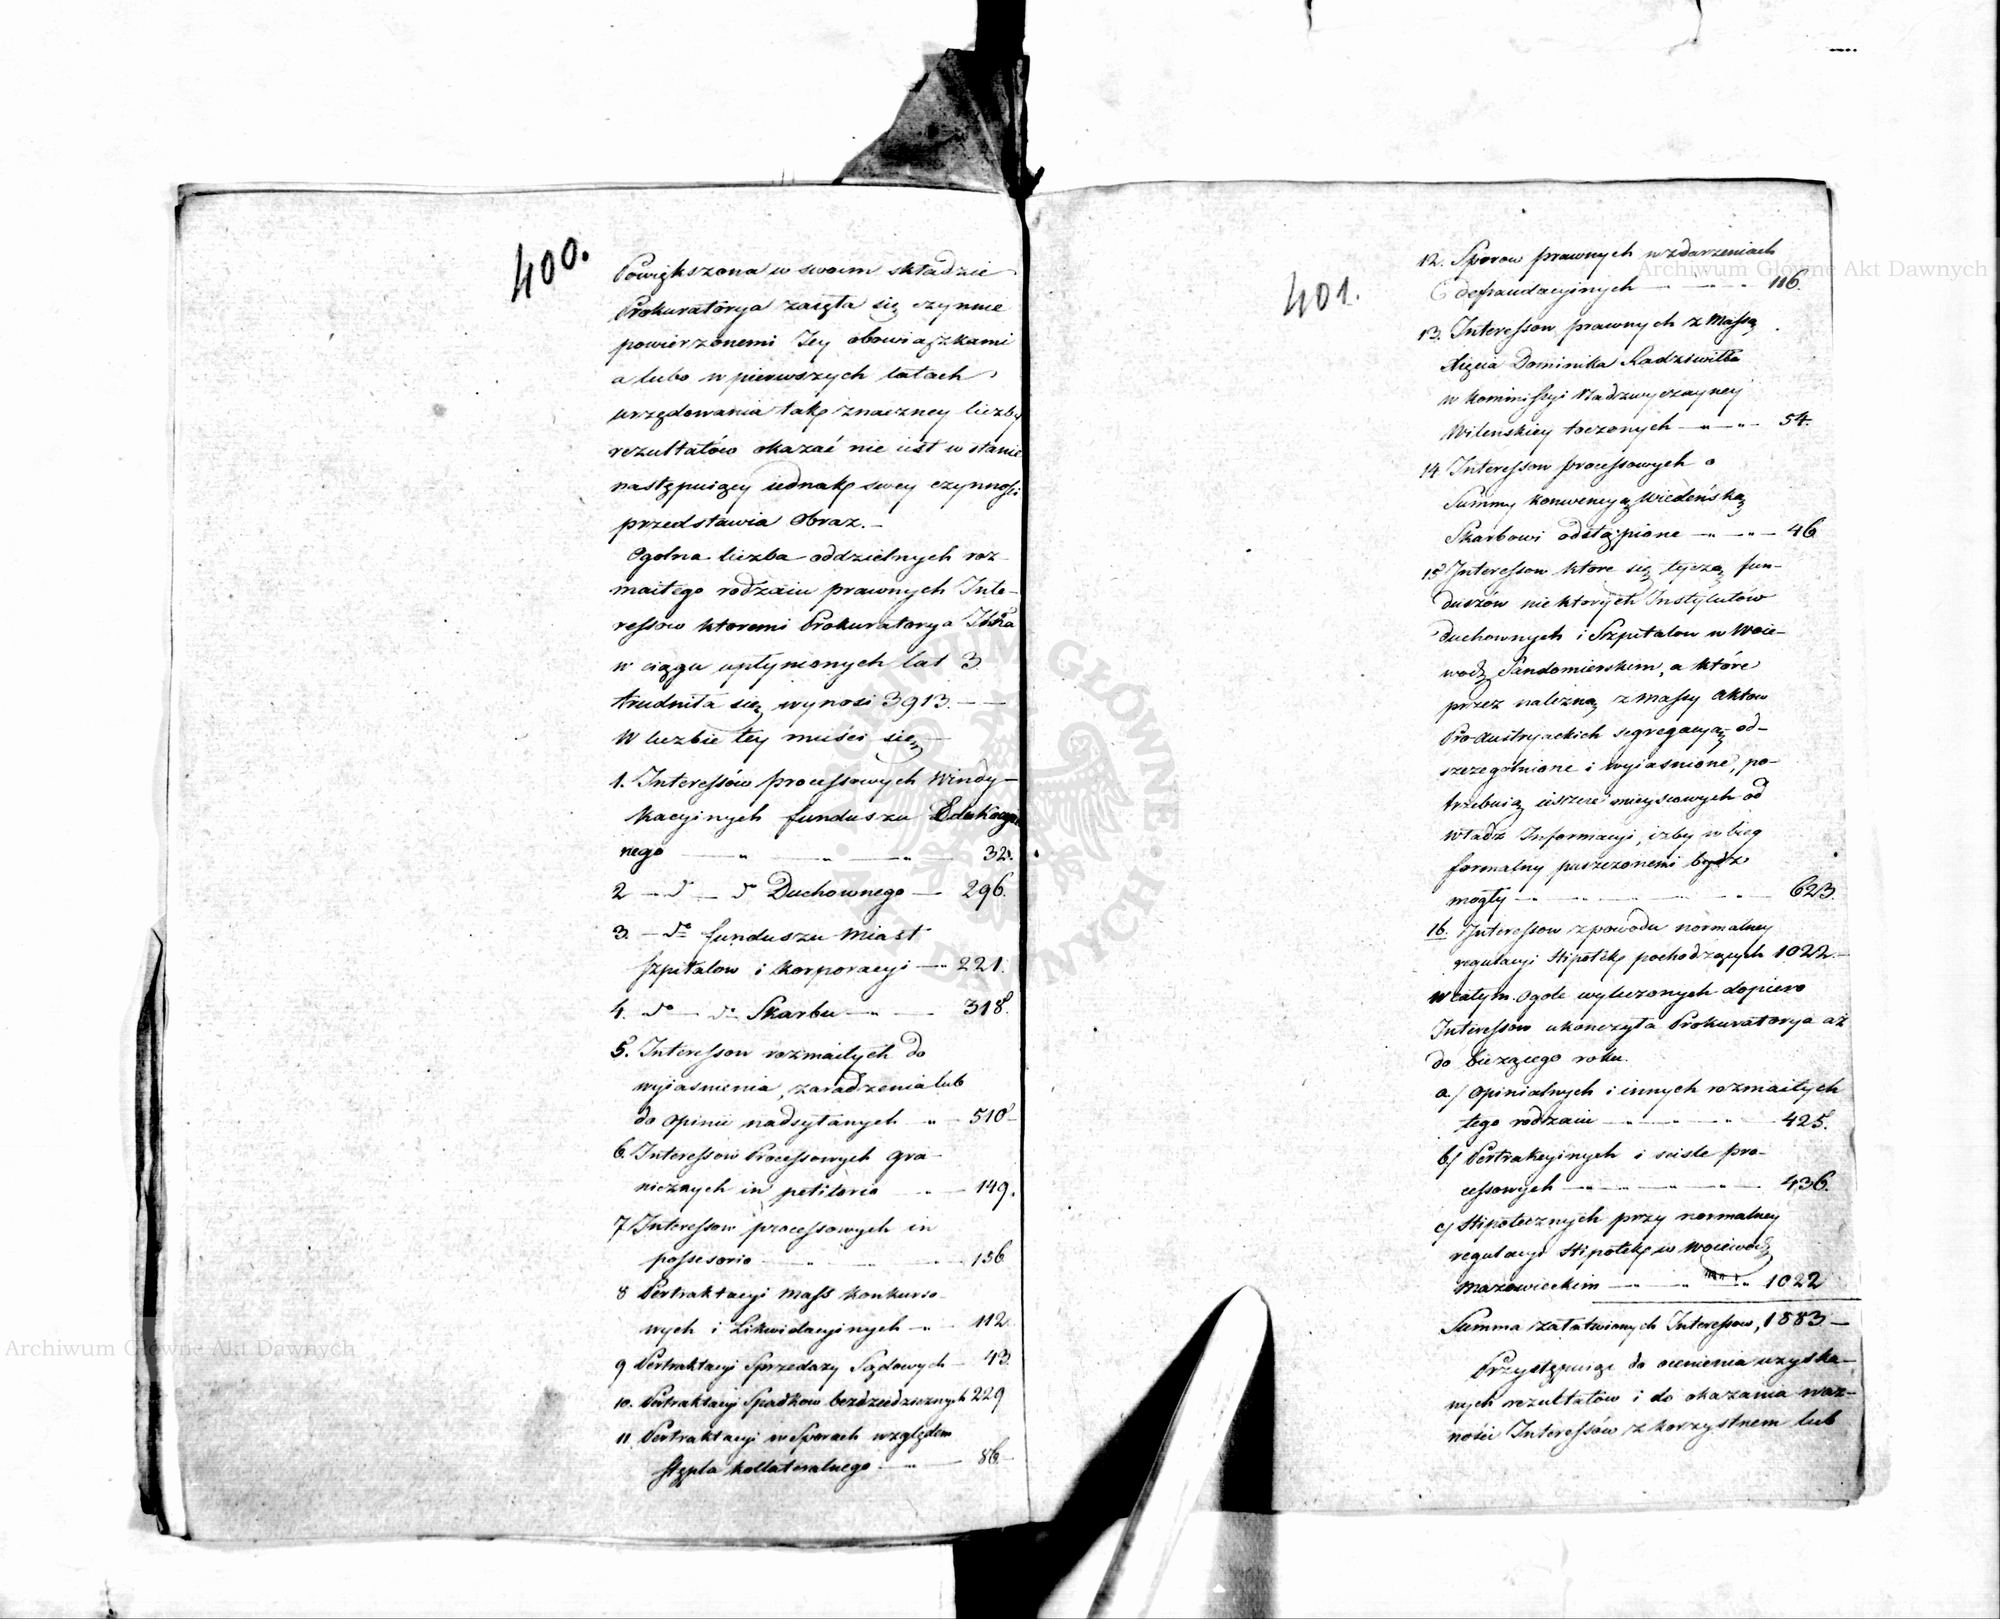 400.
Powiększona w swoim składzie
Prokuratorya zaięła się czynnie
powierzonemi Jey obowiązkami
a lubo w pierwszych latach
urzędowania tak znaczney liczby
rezultatów okazać nie iest w stanie
następuiący iednak swey czynności
przedstawia obraz.-
Ogolna liczba oddzielnych roz-
maitego rodzaiu prawnych Inte-
ressow ktoremi Prokuratorya
w ciągu upłynionych lat 3
trudniła się wynosi 3913.--
W liczbie tey mieści się
1. Interessów processowych Windy-
kacyinych funduszu Edukacyi
nego — „ — „ — „ — 32.
2 — do — do Duchownego — 296.
3. — do funduszu Miast
Szpitalow i Korporacyi — 221.
4. do — do Skarbu — „ — 318.
5. Interessow rozmaitych do
wyiasnienia, zaradzenia lub
do opinii nadsyłanych „ — 510-
6. Interessow Processowych gra-
nicznych in petitorio „ — 149.
7 Interessow processowych in
possesorio — „ — „ — 136
8 Pertraktacyi Mass konkurso-
wych i Likwidacyinych — „ — 112
9 Pertraktacyi Sprzedazy Sądowych — 43.
10. Pertraktacyi Spadkow bezdziedzicznych 229
11 Pertraktacyi w Sporach względem
Stępla kollateralnego — „ — 86-
401.
12. Sporow prawnych w zdarzeniach
defraudacyinych — „ — 116.
13. Interessow prawnych z Massą
Xięcia Dominika Radziwiłła
w Kommissyi Nadzwyczayney
Wilenskiey toczonych — „ — „ — 54.
14 Interessow processowych o
Summy konwencyą Wiedeńską
Skarbowi odstąpione — „ — „ — 46
15 Interessow ktore się tyczą fun-
duszów niektorych Instytutów
duchownych i Szpitalow w Woie-
wodz Sandomierskim, a które
przez należną z Massy Aktow
Pro-Austryackich segregacyą od-
szczególnione i wyiasnione, po-
trzebuią ieszcze mieyscowych od
władz Informacyi, izby w bieg
formalny puszczonemi bydz
mogły — „ — „ — „ — 623.
16. Interessow z powodu normalney
regulacyi Hipotek pochodzących 1022-
W całym Ogole wyliczonych dopiero
Interessow ukonczyła Prokuratorya aż
do bieżącego roku.
a/ Opinialnych i innych rozmaitych
tego rodzaiu — „ — „ — 425.
b/ Pertrakcyinych i scisle pro-
cessowych — „ — „ — „ — 436.
c/ Hipotecznych przy normalney
regulacyi Hipotek w Woiewodz
Mazowieckim — „ — „ — 1022
Summa załatwionych Interessow, 1883-
Przystępuiąc do ocenienia uzyska-
nych rezultatów i do okazania waż-
ności Interessów z korzystnem lub
Archiwum Główne Akt Dawnych
Archiwum Główne Akt Dawnych